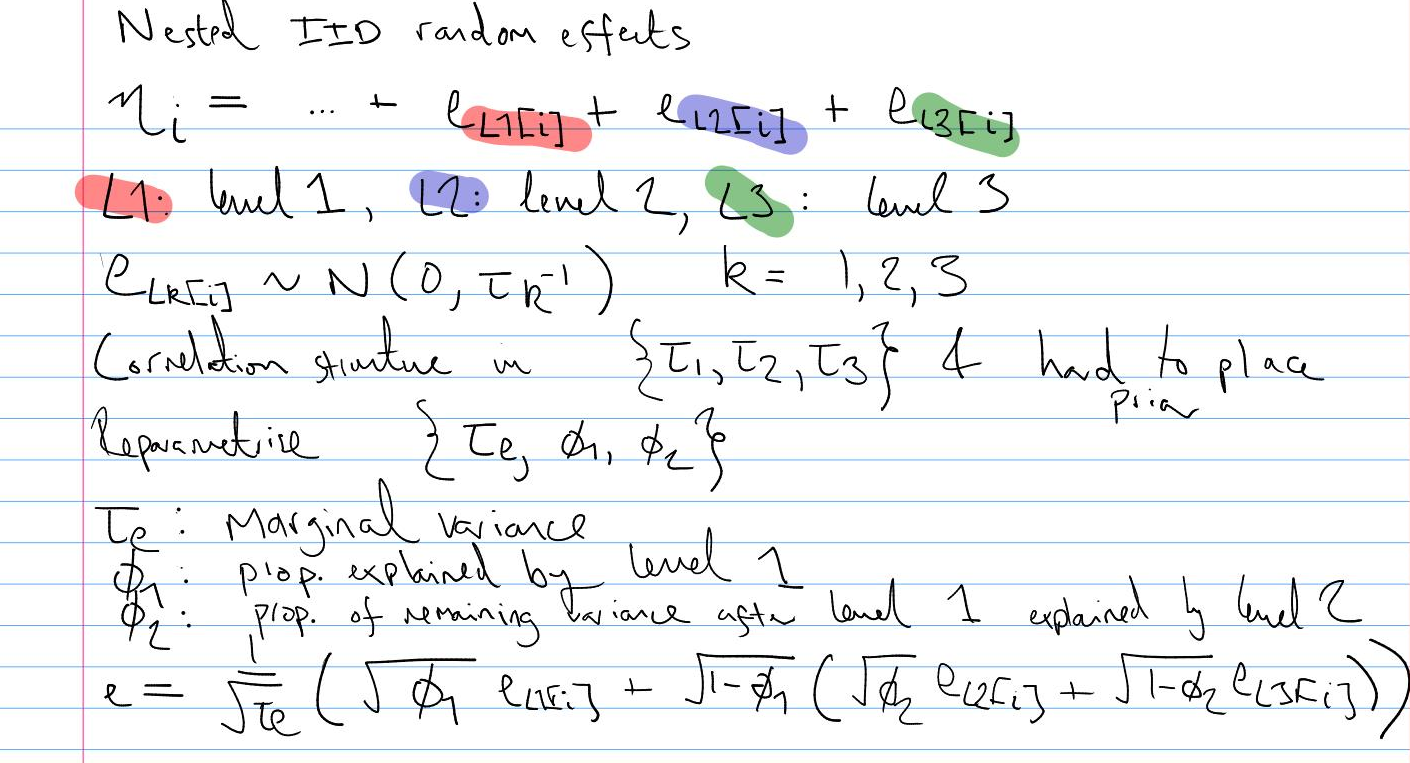 Nested IID random effects
η_i = ... + e_L1[i] + e_L2[i] + e_L3[i]
L1: level 1, L2: level 2, L3: level 3
e_Lk[i] ~ N(0, τ_k^-1) k = 1, 2, 3
Correlation structure in {τ_1, τ_2, τ_3} & hard to place
prior
Reparametrise {τ_e, φ_1, φ_2}
τ_e: Marginal variance
φ_1: prop. explained by level 1
φ_2: prop. of remaining variance after level 1 explained by level 2
e = 1/√τ_e (√φ_1 e_L1[i] + √1-φ_1 (√φ_2 e_L2[i] + √1-φ_2 e_L3[i]))